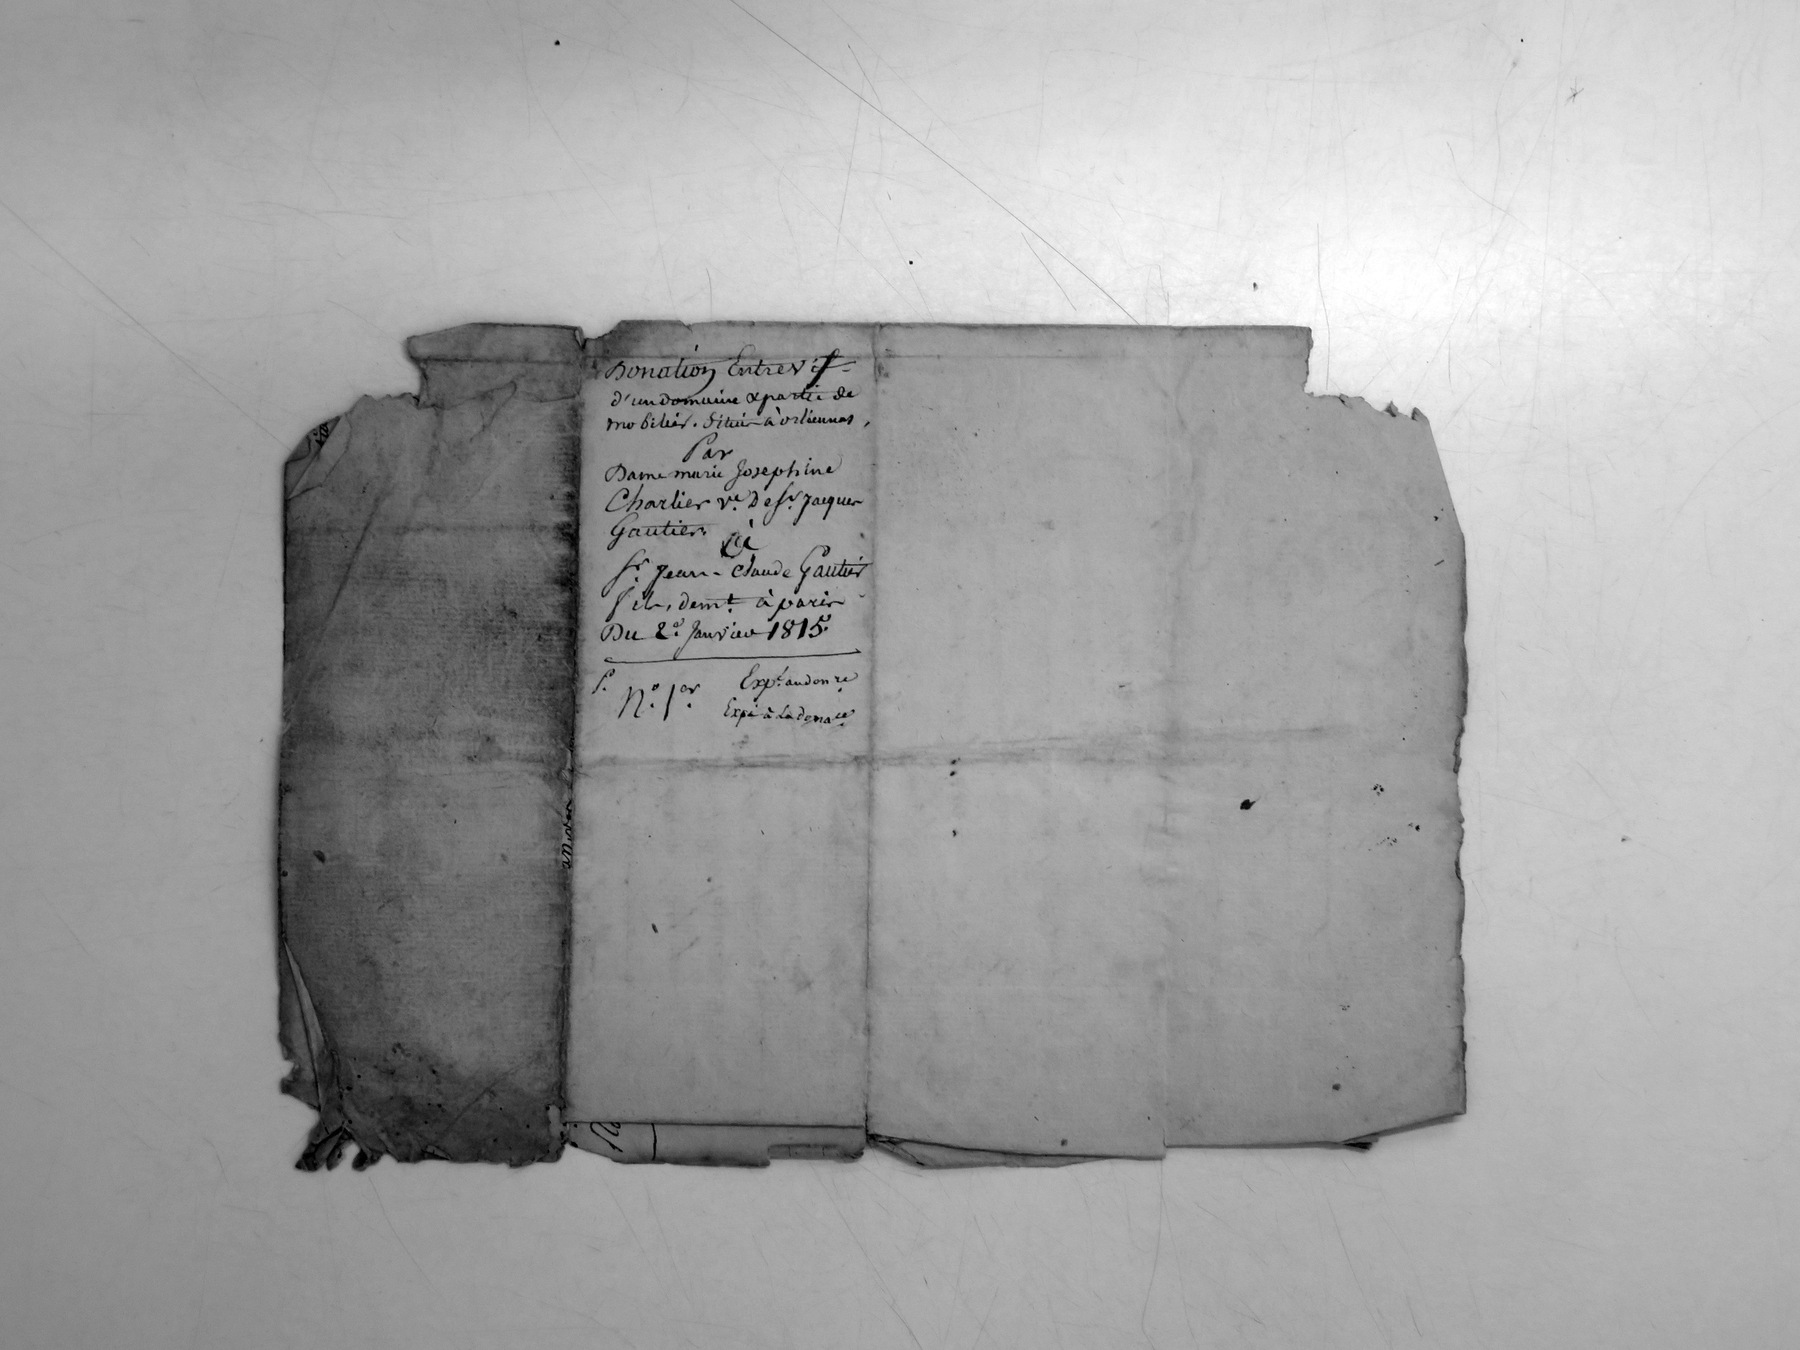 Donation Entrevif
d'un domaine & partie de
mobilier. Situé à orliennas,
Par
Dame marie Josephine
Charlier ve. De sr. Jacques
Gautier.
à
Sr. Jean-Claude Gautier
fils, demt. à paris
Du 2e. Janvier 1815.
No. 1er. Expt. au don re
Expé à La dona ce